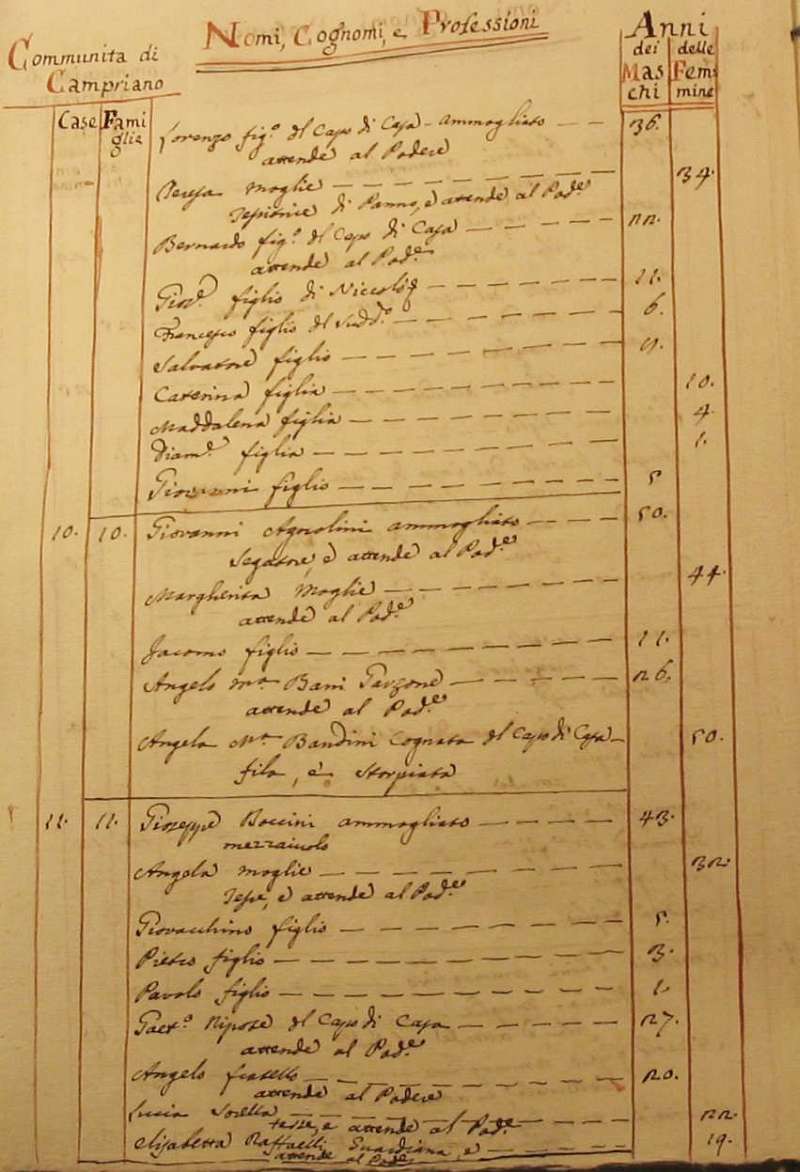 Communita di
Campriano
Nomi, Cognomi, e Professioni
Anni
dei Maschi
delle Femmine
Case
Famiglie
Lorenzo fig.o del Capo di Casa ammogliato 36.
attende al Podere
Teresa Moglie 34.
di Panno, e attende al Pod.e
Bernardo fig.o del Capo di Casa 22.
attende al Pod.e
Giov.i figlio di Niccolò 11.
Francesco figlio del Sudd.o 6.
Salvatore figlio
Caterina figlia 10.
Maddalena figlia 4.
Diam.e figlia 1.
Giovanni figlio 5
10. 10. Giovanni Agnolini ammogliato 50.
Segatore, e attende al Pod.e
Margherita Moglie 44.
attende al Pod.e
Jacomo figlio 11.
Angelo M.a Bani Garzone 26.
attende al Pod.e
Angela M.a Bandini Cognata del Capo di Casa 50.
fila, e Storpiata
11. 11. Giuseppe Boccini ammogliato 43.
mezzaiuolo
Angola Moglie 32.
Tesse, e attende al Pod.e
Giovacchino figlio 5.
Pietro figlio 3.
Pavolo figlio 1.
Gaet.o Nipote del Capo di Casa 27.
attende al Pod.e
Angelo fratello 20.
attende al Podere
Lucia Sorella 22.
tesse, e attende al Pod.e
Elisabetta Raffaelli Guardiana, e 19.
attende al Pod.e